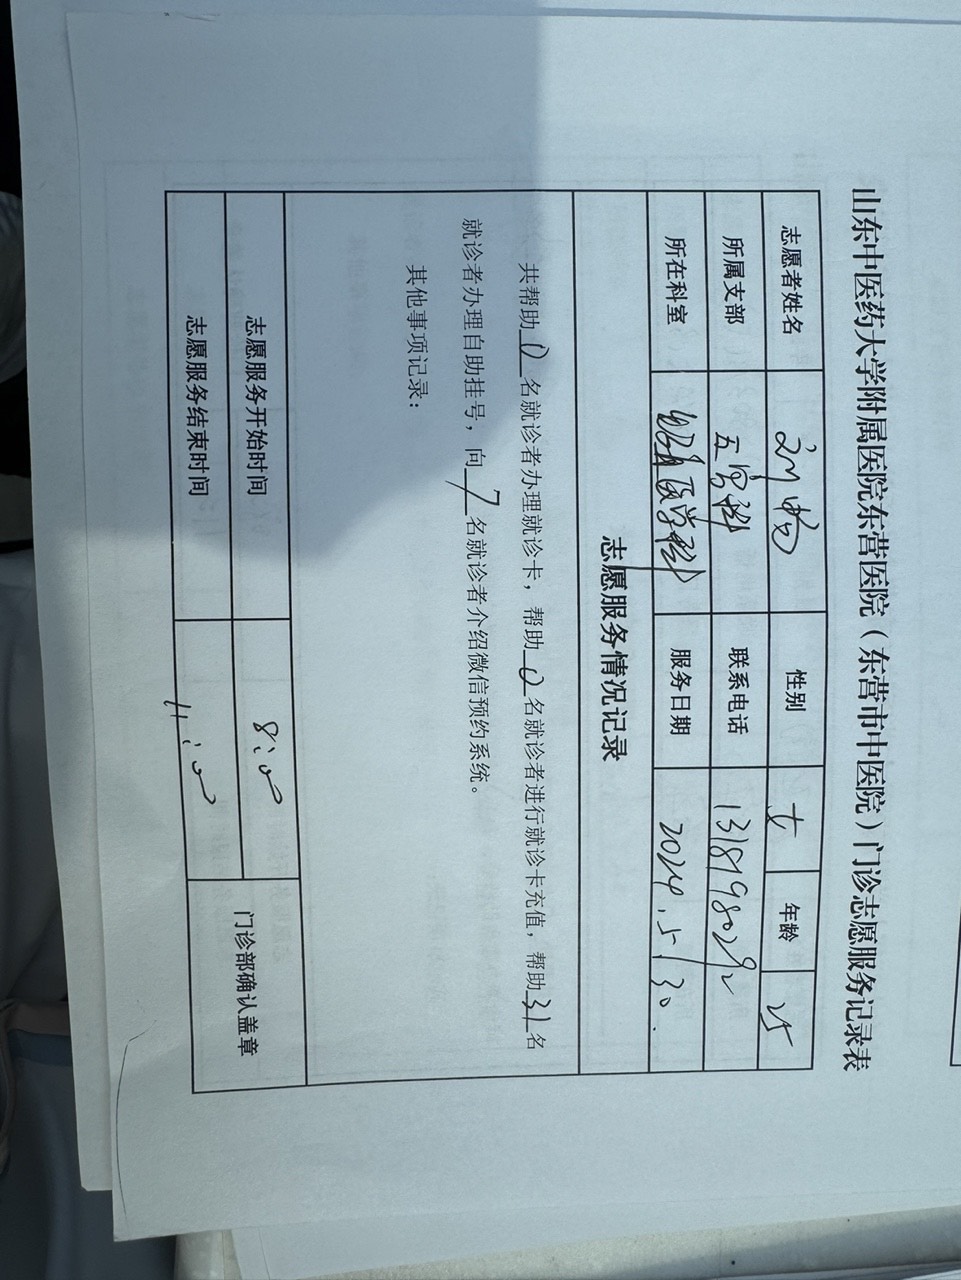 山东中医药大学附属医院东营医院（东营市中医院）门诊志愿服务记录表
志愿者姓名 性别 女 年龄 25
所属支部 五官科 联系电话 13181980292
所在科室 眼科医学科 服务日期 2024.5.30.
志愿服务情况记录
共帮助 0 名就诊者办理就诊卡，帮助 0 名就诊者进行就诊卡充值，帮助 31 名
就诊者办理自助挂号，向 7 名就诊者介绍微信预约系统。
其他事项记录：
志愿服务开始时间 8:00 门诊部确认盖章
志愿服务结束时间 11:00